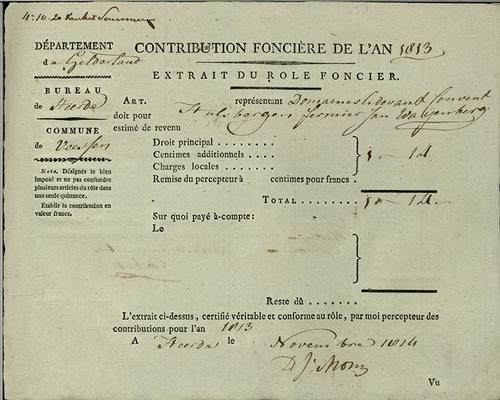 DÉPARTEMENT
d e Gelderland
BUREAU
de Heerde
COMMUNE
de Veessen
Nota. Désigner le bien
imposé et ne pas confondre
plusieurs articles du rôle dans
une seule quittance.
Etablir la contribution en
valeur francs.
CONTRIBUTION FONCIÈRE DE L'AN 1813
EXTRAIT DU ROLE FONCIER.
ART. représentant Domaines ci devant Convent
doit pour Hulsbergen fermier Jan
estimé de revenu
Droit principal
Centimes additionnels
Charges locales
Remise du percepteur à centimes pour francs.
TOTAL
Sur quoi payé à-compte:
Le
Reste dû
L'extrait ci-dessus, certifié véritable et conforme au rôle, par moi percepteur des
contributions pour l'an 1813
A Heerde le Novembre 1814
Vu